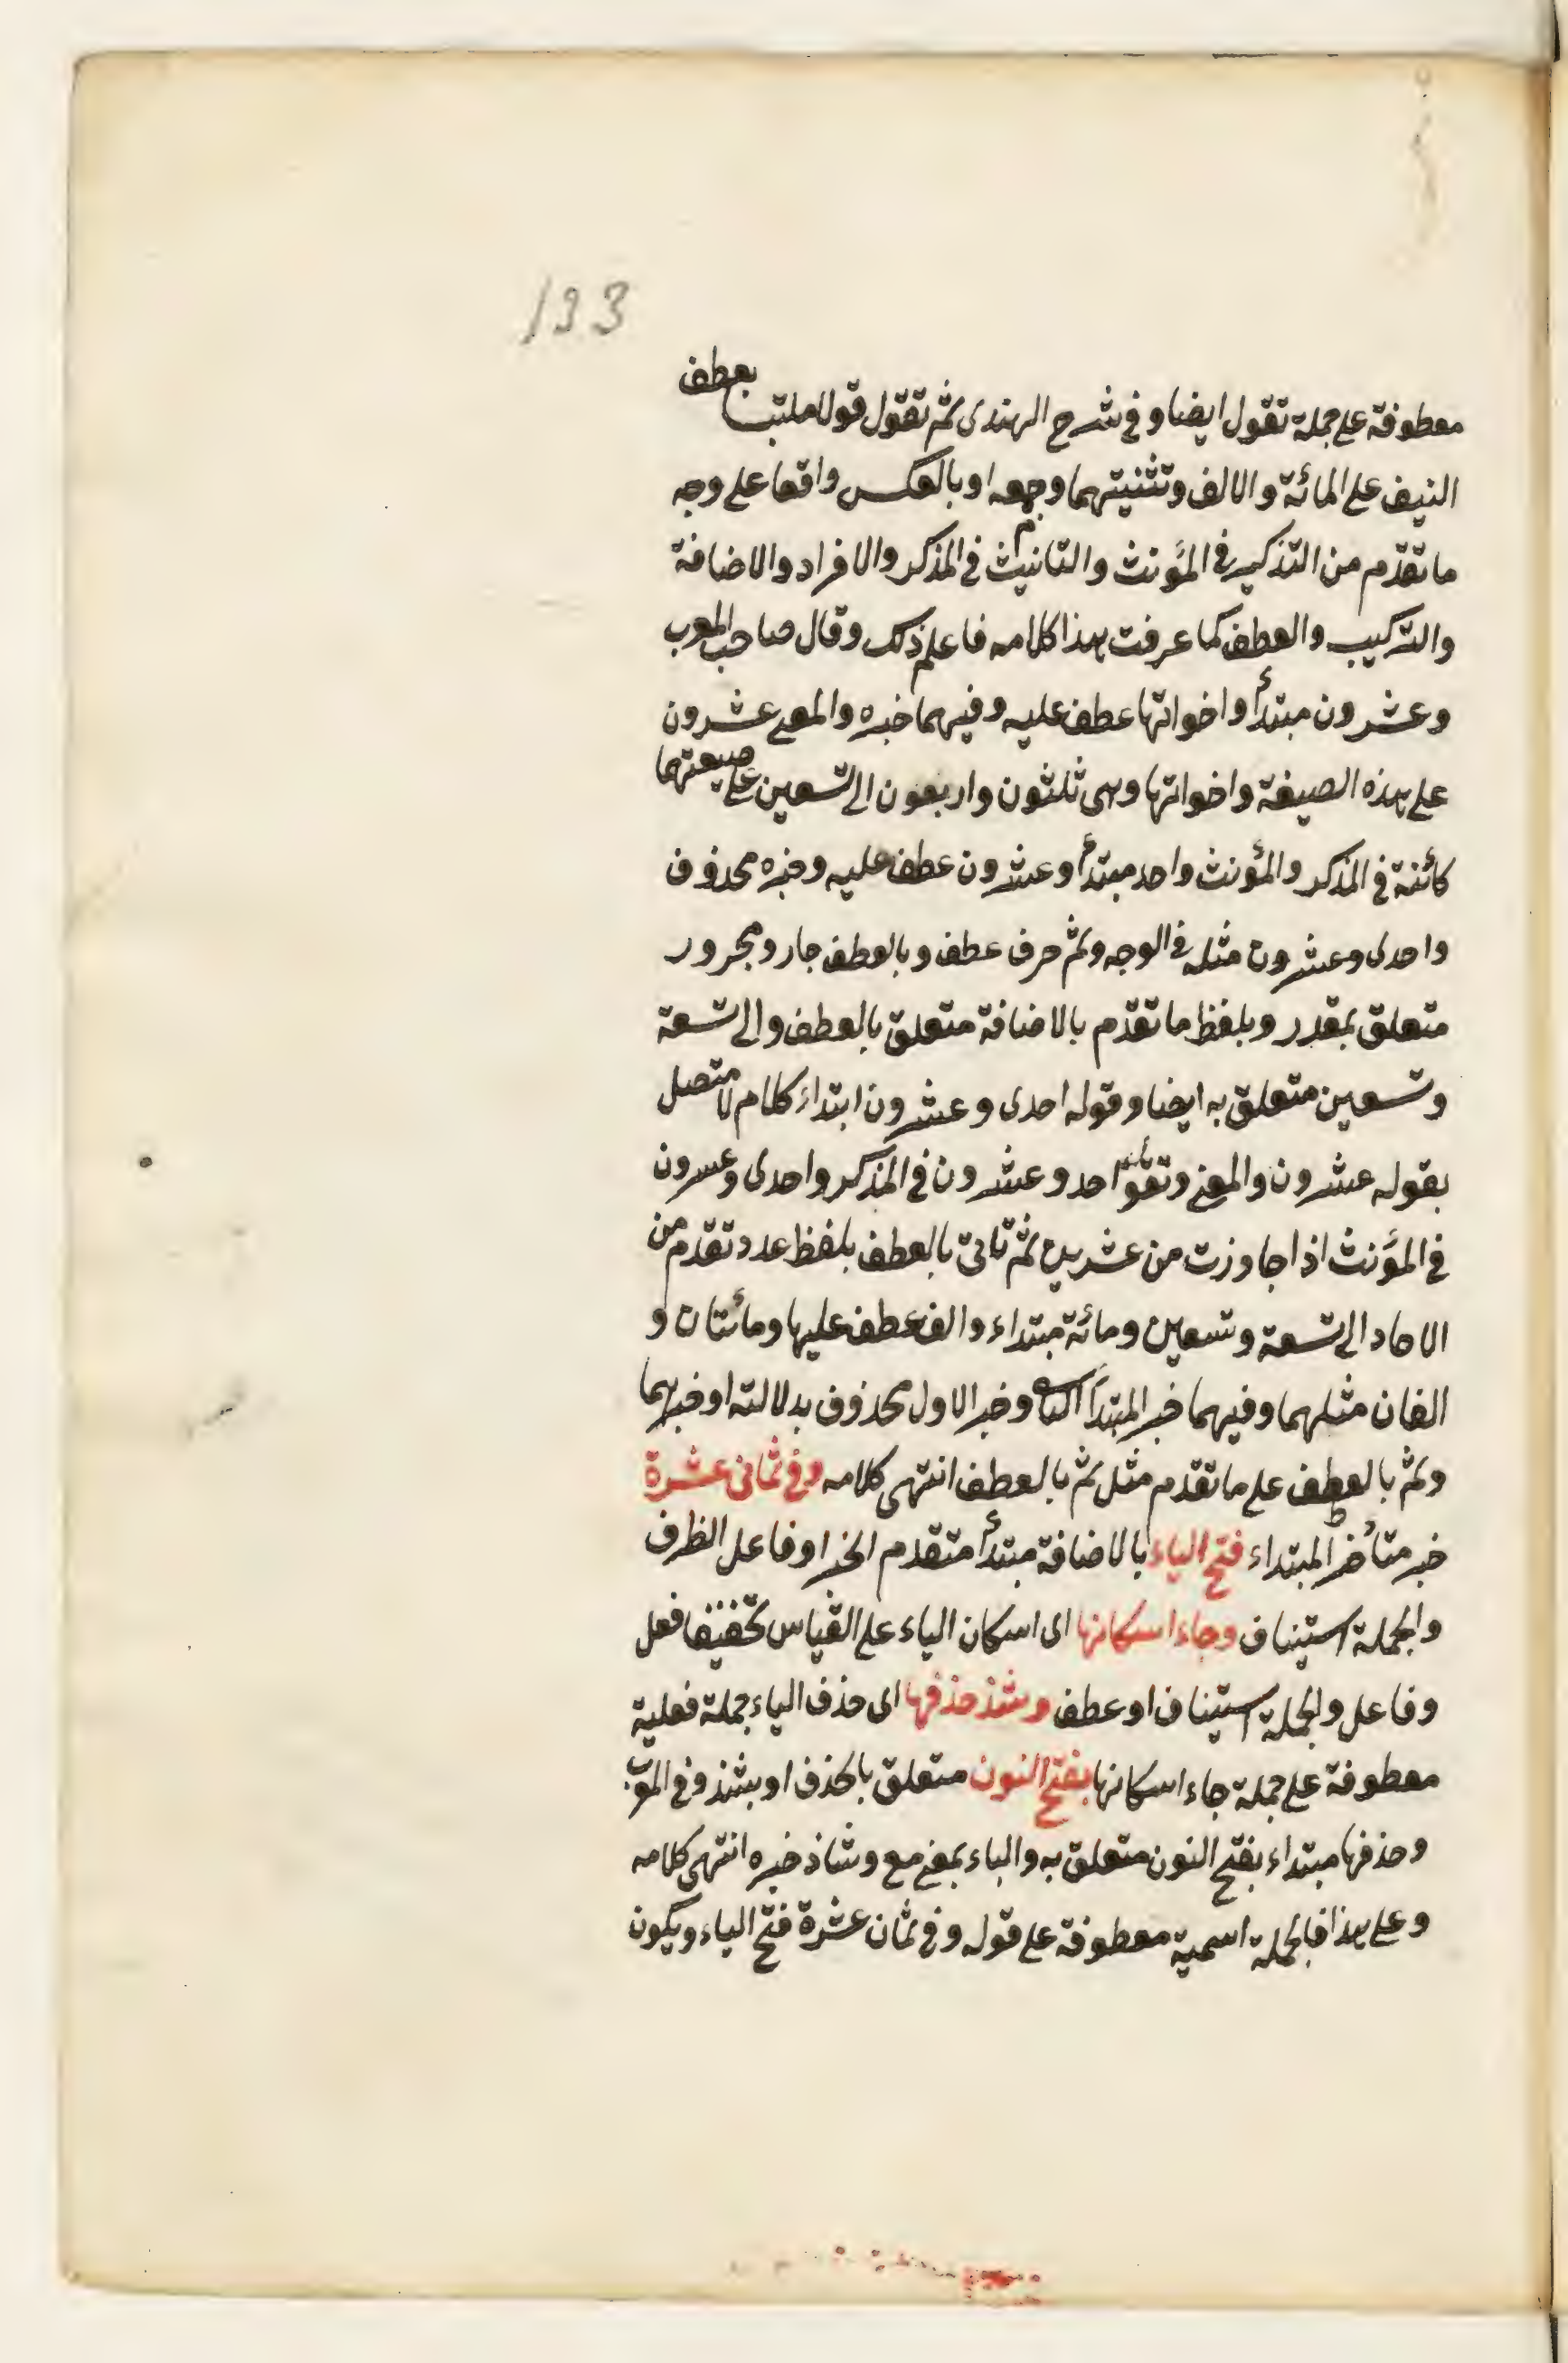 133
معطوفة على جملة تقول ايضا وفى شرح الهندى ثم تقول قولا ملتبسا بعطف
النيف على المائة والالف وتثنيتهما وجمعه او بالعكس واقعا على وجه
ما تقدّم من التذكير فى المؤنث والتانيث فى المذكر والافراد والاضافة
والتركيب والعطف كما عرفت هذا كلامه فاعلم ذلك وقال صاحب المعرب
وعشرون مبتدأ واخواتها عطف عليه وفيهما خبره والمعنى عشرون
على هذه الصيغة واخواتها وهى ثلثون واربعون الى تسعين على صيغتها
كائنة فى المذكر والمؤنث واحد مبتدأ وعشرون عطف عليه وخبره محذوف
واحدى وعشرون مثله فى الوجه وثم حرف عطف وبالعطف جار ومجرور
متعلق بمقدر وبلفظ ما تقدّم بالاضافة متعلق بالعطف والى تسعة
وتسعين متعلق به ايضا وقوله احدى وعشرون ابتداء كلام لا متصل
بقوله عشرون والمعنى وتقول احد وعشرون فى المذكر واحدى وعسرون
فى المؤنث اذا جاوزت من عشرين ثم تاتى بالعطف بلفظ عدد تقدم من
الاحاد الى تسعة وتسعين ومائة مبتداء والف عطف عليها ومائتان و
الفان مثلهما وفيهما خبر المبتدأ الثانى وخبر الاول محذوف بدلالته او خبرهما
وثم بالعطف على ما تقدم مثل ثم بالعطف انتهى كلامه وفى ثمانى عشرة
خبر متأخر المبتداء فتح الياء بالاضافة مبتدأ متقدم الخبر او فاعل الظرف
والجملة استيناف وجاء اسكانها اى اسكان الياء على القياس تخفيفا فعل
وفاعل والجملة استيناف او عطف وشذ حذفها اى حذف الياء جملة فعلية
معطوفة على جملة جاء اسكانها بفتح النون متعلق بالحذف او بشذ وفى المعرب
وحذفها مبتداء بفتح النون متعلق به والباء بمعنى مع وشاذ خبره انتهى كلامه
وعلى هذا فالجملة اسمية معطوفة على قوله وفى ثمان عشرة فتح الياء ويكون